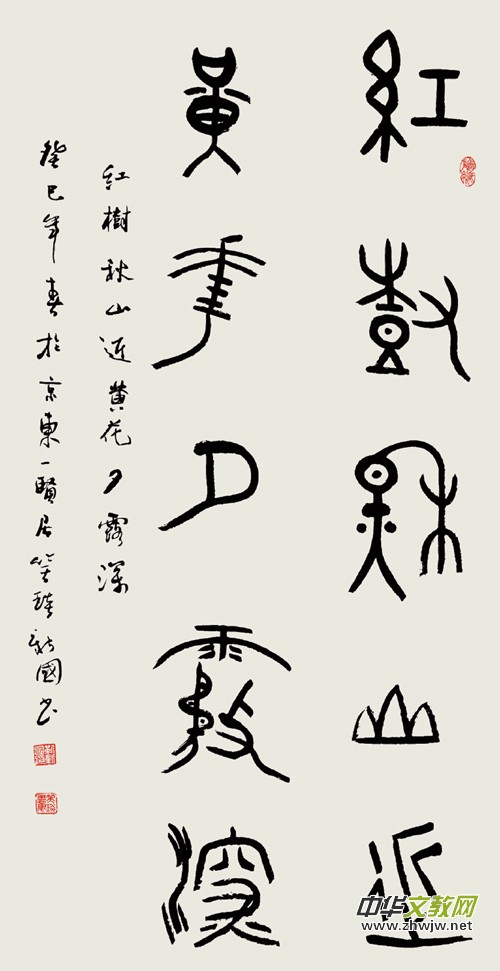 紅樹秋山近
黃花夕露深
紅樹秋山近黃花夕露深
癸巳年春於京東一賢居
國書
中华文教网
www.zhwjw.net